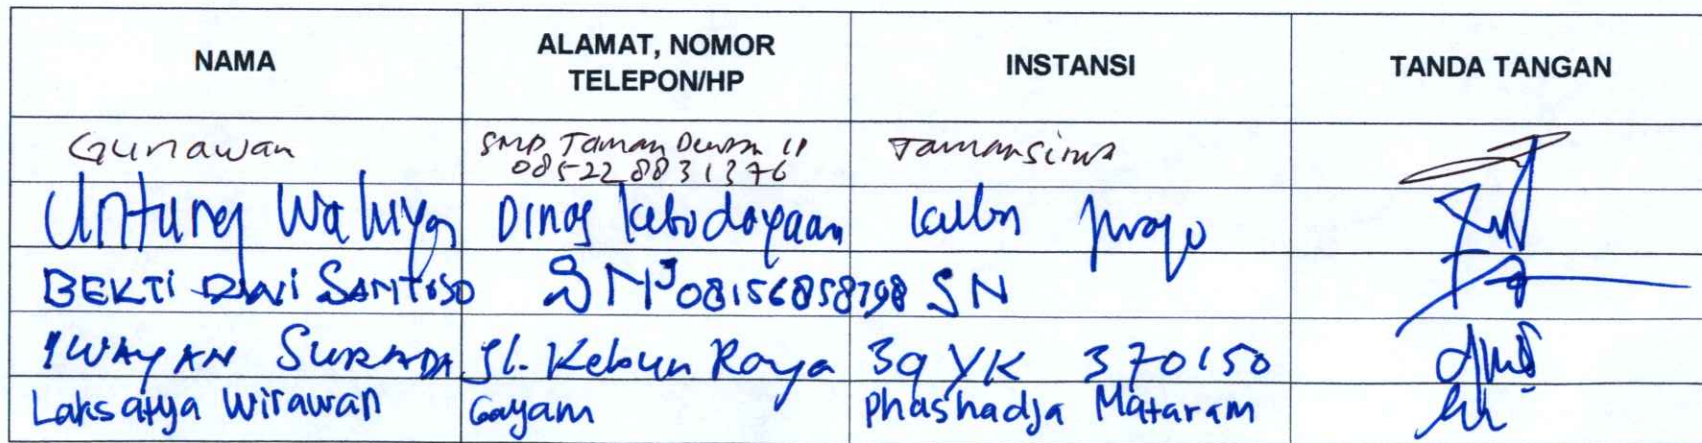 NAMA ALAMAT, NOMOR TELEPON/HP INSTANSI TANDA TANGAN
Gunawan SMP Taman Dewasa Tamansiswa
085228831376
Untung Waluyo Dinas kebudayaan kulon progo
BEKTI DWI SANTOSO 08156858798 SN
I WAYAN SURADA Jl. Kebun Raya 39 YK 370150
Laksatya Wirawan Gayam Phashadja Mataram